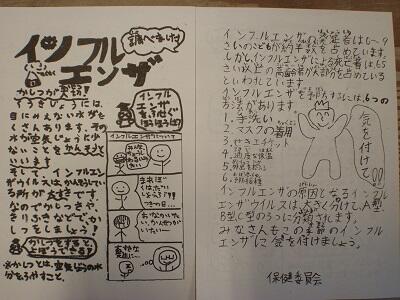 調べました
インフル
エンザ
かしつが大切!
くうきじょうには、
目にみえない水がた
くさんあります。その
水が空気じょうに少
ないことをかんそうと
いいます。
そして、インフルエン
ザウイルスは、かんそうしてい
る所が大すきです。
なのでかしつきや、
きりふきなどでか
しつをしましょう!
かしつをすると、
※かしつとは、空気じょうの水
分をふやすこと。
インフル
エンザ
をふせぐ
ほうほう
インフルエンザについて
インフルエンザの発症者は0〜9
さいのこどもが約半数を占めています。
しかしインフルエンザによる死亡者は65
さい以上の高齢者が大部分を占めている
といわれています。
インフルエンザを予防するには、6つの
方法があります
1.手洗い
2.マスクの着用
3.せきエチケット
4.適度な保温
6.予防接種
気を付けて!!
インフルエンザの原因となるインフル
エンザウイルスは、大きく分けて、A型、
B型、C型の3つに分類されます。
みなさんもこの季節のインフル
エンザに気を付けましょう。
保健委員会